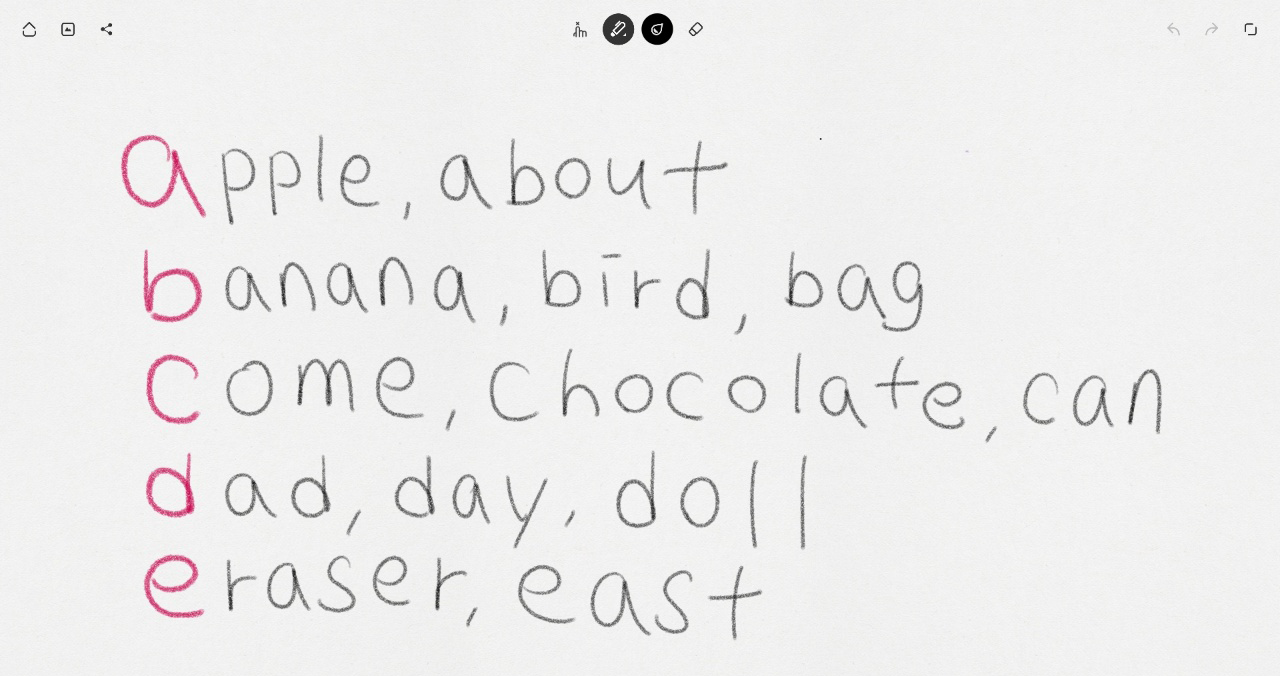 apple, about
banana, bird, bag
come, chocolate, can
dad, day, doll
eraser, east